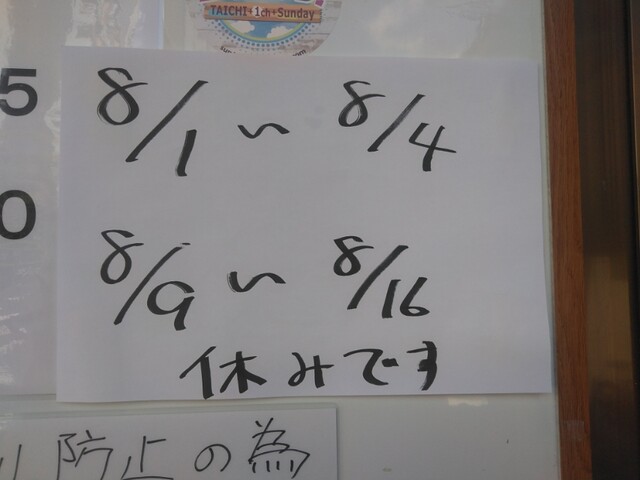 TAICHI+1ch+Sunday
5
8/1 〜 8/4
0
8/9 〜 8/16
休みです
防止の為